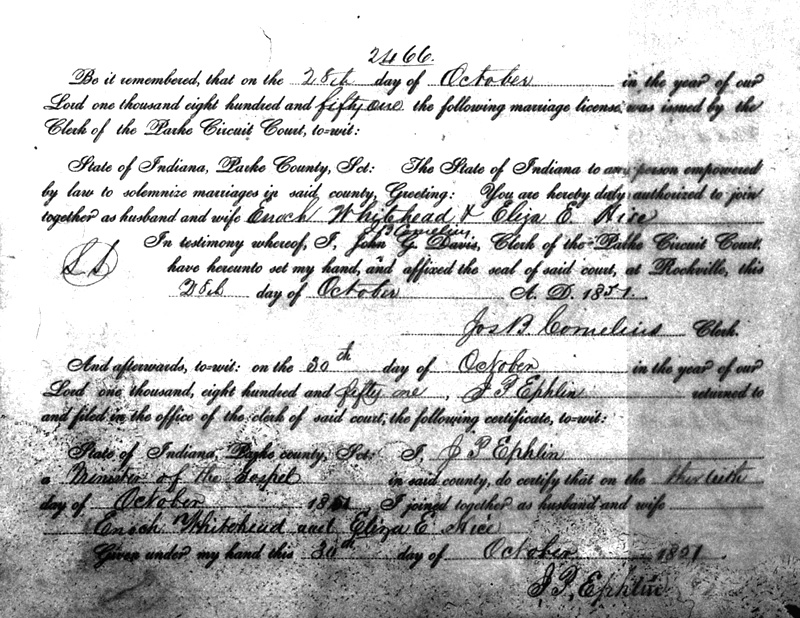 2466.
Be it remembered, that on the 28th day of October in the year of our
Lord one thousand eight hundred and fifty one the following marriage license, was issued by the
Clerk of the Parke Circuit Court, to=wit:
State of Indiana, Parke County, Sct: The State of Indiana to any person empowered
by law to solemnize marriages in said county, Greeting: You are hereby duly authorized to join
together as husband and wife Enoch Whitehead & Eliza E. Hice
J B Cornelius
In testimony whereof, I, John G. Davis, Clerk of the Parke Circuit Court,
have hereunto set my hand, and affixed the seal of said court, at Rockville, this
28th day of October A. D. 1851.
Jos B. Cornelius Clerk.
And afterwards, to=wit: on the 30th day of October in the year of our
Lord one thousand, eight hundred and fifty one, J P Ephlin returned to
and filed in the office of the clerk of said court, the following certificate, to=wit:
State of Indiana, Parke county, Sct: I, J P Ephlin
a Minister of the Gospel in said county, do certify that on the thirtieth
day of October 1851 I joined together as husband and wife
Enoch Whitehead and Eliza E Hice
Given under my hand this 30th day of October 1851
J. P. Ephlin